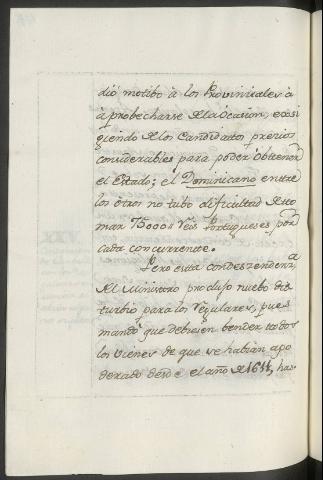 dió motibo à los Provinciales à
àprobecharse de la òcasion, exsi
guiendo de los Candidatos precios
considerables para poder òbtener
el Estado; el Dominicano entre
los otros no tubo dificultad de to
mar 15000 Reis Portugueses por
cada concurrente.
Pero esta condeszendenza
del Ministro produjo nuebo dis
turbio para los Regulares, pues
mandò que debiesen bender todos
los vienes de que se habian apo
derado desde el año de 1611, has